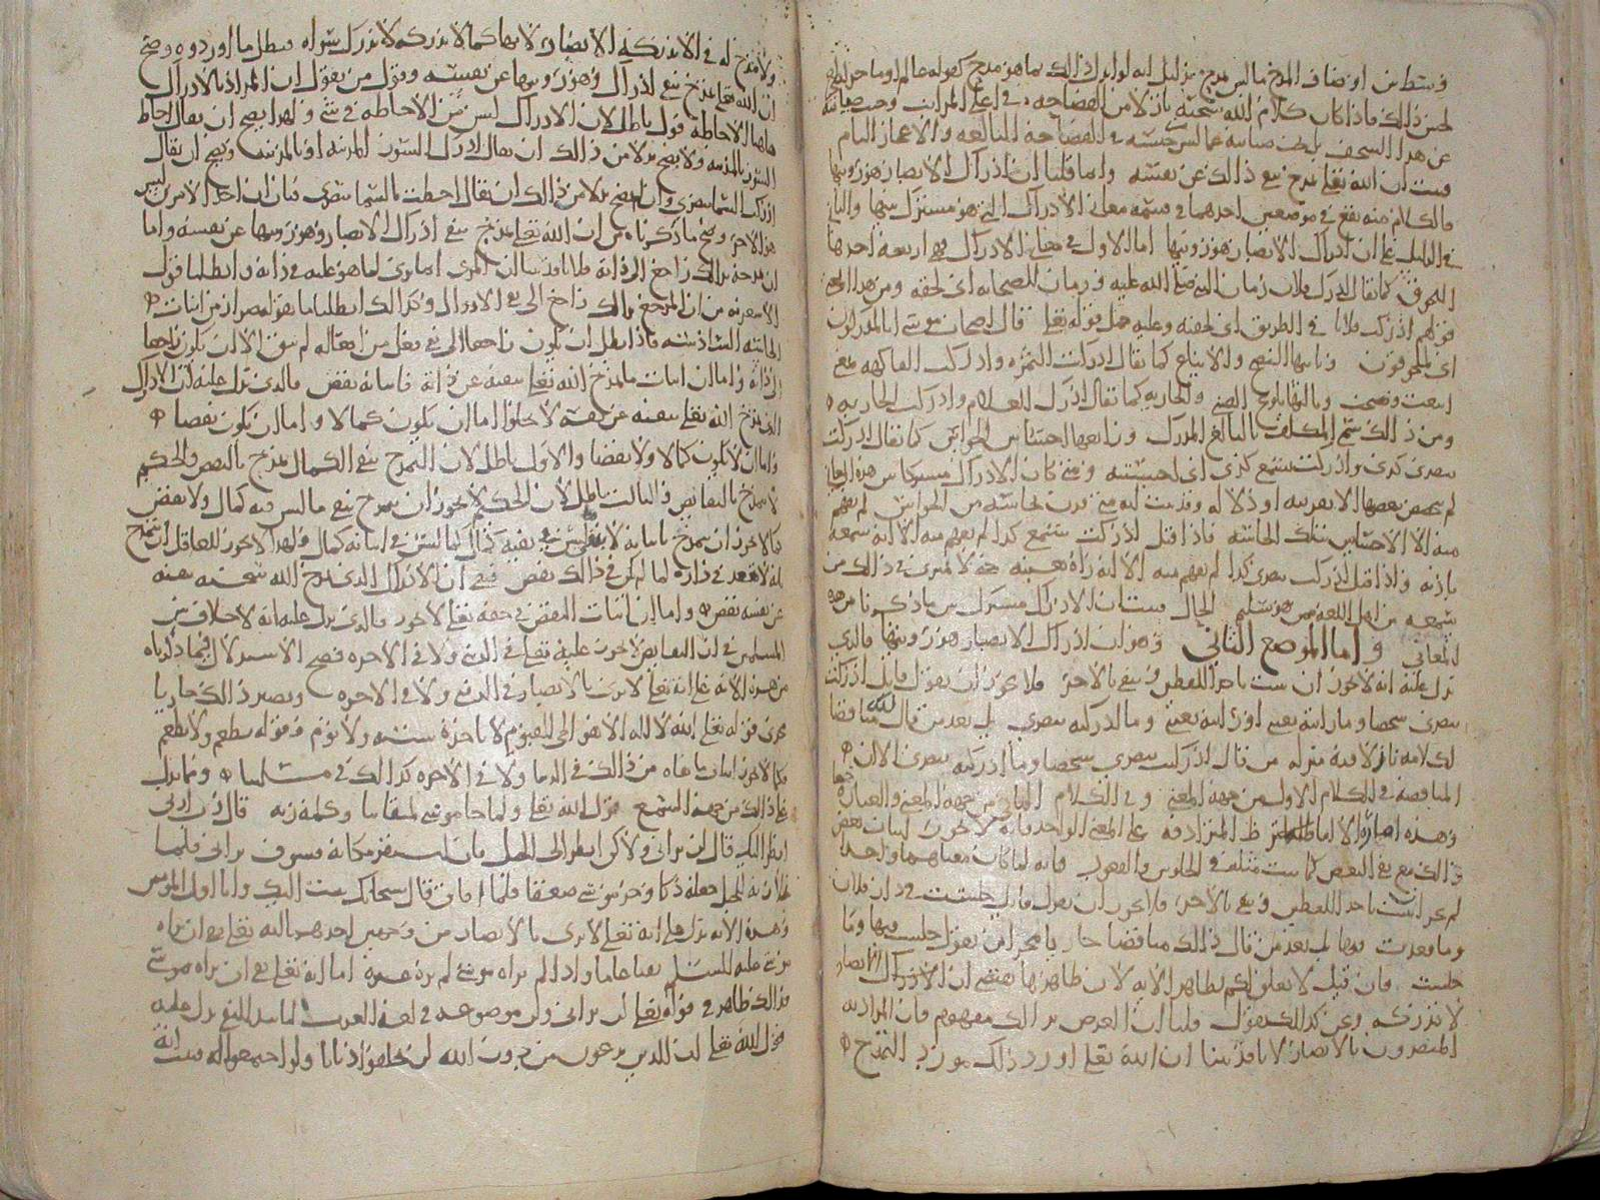 وسط بين اوصاف المدح ما ليس بمدح بدليل انه لو ادرك ذلك بما هو مدح كقوله عالم او ما جرى
لحسن ذلك فاذا كان كلام الله سبحانه في اعلى المراتب وجب صيانته
عن هذا السخف بل يجب صيانته عما ليس بحسنه في الفصاحة البالغه والاعجاز التام
فثبت ان الله تعالى تمدح بنفي ذلك عن نفسه واما قلنا ان ادراك الابصار هو رؤيتها
فالكلام منه يقع في موضعين احدهما في قسمة معاني الادراك التي هو مشترك بينها والثاني
في الدليل على ان ادراك الابصار هو رؤيتها اما الاول في معاني الادراك فهي اربعة احدها
اللحوق كما يقال ادرك فلان زمان النبي صلى الله عليه وزمان الصحابه اي لحقه ومن هذا
قولهم ادركت فلانا في الطريق اي لحقته وعليه حمل قوله تعالى قال اصحاب موسى انا لمدركون
اي ملحوقون وثانيها النضج والايناع كما يقال ادركت الثمره وادركت الفاكهه بمعنى
اينعت ونضجت وثالثها بلوغ الصبي والجاريه كما يقال ادرك الغلام وادركت الجاريه
ومن ذلك سمي المكلف بالبالغ المدرك ورابعها احساس الحواس كما يقال ادركت
ببصري كذى وادركت بسمعي كذى اي احسسته ومتى كان الادراك مشتركا بين هذه المعاني
لم يخصص بعضها الا بقرينه او دلاله وقد ثبت انه متى قرن بحاسة من الحواس لم يفهم
منه الا الاحساس بتلك الحاسه فاذا قيل ادركت بسمعي كذا لم يفهم منه الا انه سمعه
باذنه واذا قيل ادركت ببصري كذا لم يفهم منه الا انه راه بعينه حتى لا يمتري في ذلك من
سمعه من اهل اللغه ممن هو سليم الحال فثبت ان الادراك مشترك بين ما ذكرنا من هذه
المعاني واما الموضع الثاني وهو ان ادراك الابصار هو رؤيتها فالذي
يدل عليه انه لا يجوز ان يثبت باحد اللفظين وينفى بالاخر فلا يجوز ان يقول قايل ادركت
ببصري شخصا وما رايته بعيني او رايته بعيني وما ادركته ببصري بل يعد من قال ذلك مناقضا
لكلامه نازلا فيه منزله من قال ادركت ببصري شخصا وما ادركته ببصري الا ان
المناقضه في الكلام الاول من جهة المعنى وفي الكلام الثاني من جهة المعنى والعباره
وهذه اماره الالفاظ المترادفه على المعنى الواحد فانه لا يجوز اثبات بعض
ذلك مع نفي البعض كما يثبت مثله في الجلوس والقعود فانه لما كان معناهما واحدا
لم يجز ان يثبت باحد اللفظين وينفى بالاخر فلا يجوز ان يقول قايل جلست في دار فلان
وما قعدت فيها بل يعد من قال ذلك مناقضا جاريا مجرى من يقول جلست فيها وما
جلست فان قيل لا تعلق لكم بظاهر الايه لان ظاهرها يقتضي ان الادراك الابصار
لا تدركه ونحن كذلك نقول قلنا ان الغرض بذلك مفهوم فان المراد به
المبصرون بالابصار لانا قد بينا ان الله تعالى اورد ذلك مورد التمدح
ولا تمدح له في الا تدركه الابصار لانها كما لا تدركه لا تدرك سواه فبطل ما اوردوه وصح
ان الله تعالى تمدح بنفي ادراك وهو رؤيتها عن نفسه وقول من يقول ان المراد بالادراك
هاهنا الاحاطه قول باطل لان الادراك ليس من الاحاطه في شي ولهذا يصح ان يقال احاط
السور بالمدينه ولا يصح بدلا من ذلك ان يقال ادرك السور المدينه او بالمدينه ويصح ان يقال
ادركت السما ببصري ولا يصح بدلا من ذلك ان يقال احطت بالسما ببصري فبان ان احد الامرين ليس
هو الاخر وصح ما ذكرناه من ان الله تعالى تمدح بنفي ادراك الابصار وهو رؤيتها عن نفسه واما
ان تمدحه بذلك راجع الى ذاته فلانا قد بينا ان المرى انما يرى لما هو عليه في ذاته وابطلنا قول
الاشعريه من ان المرجع بذلك راجع الى نفي الادراك وكذلك ابطلنا ما يقوله ضرار من اثبات
الحاسه السادسه فاذا بطل ان يكون راجعا الى نفي فعل من افعاله لم يبق الا ان يكون راجعا
الى ذاته واما ان اثبات ما تمدح الله تعالى بنفيه عن ذاته فاثباته نقص فالذي يدل عليه ان الادراك
الذي تمدح الله تعالى بنفيه عن نفسه لا يخلوا اما ان يكون كمالا واما ان يكون نقصا
واما ان لا يكون كمالا ولا نقصا والاول باطل لان التمدح بنفي الكمال تمدح بالنقص والحكيم
لا يتمدح بالنقايص والثالث باطل لان الحكيم لا يجوز ان يتمدح بنفي ما ليس فيه كمال ولا نقص
كما لا يجوز ان يتمدح باثباته لا
بانه لا يقعد في داره لما لم يكن في ذلك نقص فبقي ان الادراك الذي تمدح الله سبحانه بنفيه
عن نفسه نقص واما ان اثبات النقص في حقه تعالى لا يجوز فالذي يدل عليه انه لا خلاف بين
المسلمين في ان النقايص لا تجوز عليه تعالى في الدنيا ولا في الاخره فصح الاستدلال فيما ذكرناه
من هذه الايه على انه تعالى لا يرى بالابصار في الدنيا ولا في الاخره وبصير ذلك جاريا
مجرى قوله تعالى الله لا اله الا هو الحي القيوم لا تاخذه سنه ولا نوم وقوله يطعم ولا يطعم
فكما لا يجوز اثبات ما نفاه من ذلك في الدنيا ولا في الاخره كذلك في مسلتنا ومما يدل
على ذلك من جهة السمع قول الله تعالى ولما جا موسى لميقاتنا وكلمه ربه قال رب ارني
انظر اليك قال لن تراني ولكن انظر الى الجبل فان استقر مكانه فسوف تراني فلما
تجلى ربه للجبل جعله دكا وخر موسى صعقا فلما افاق قال سبحانك تبت اليك وانا اول المومنين
وهذه الايه تدل على انه تعالى لا يرى بالابصار من وجهين احدهما انه تعالى نفى ان يراه
موسى عليه السلم نفيا عاما واذا لم يراه موسى لم يره غيره اما انه تعالى نفى ان يراه موسى
فذلك ظاهر في قوله تعالى لن تراني ولن موضوعه في لغة العرب لتابيد النفي يدل عليه
قول الله تعالى ان الذين تدعون من دون الله لن يخلقوا ذبابا ولو اجتمعوا له فثبت انه